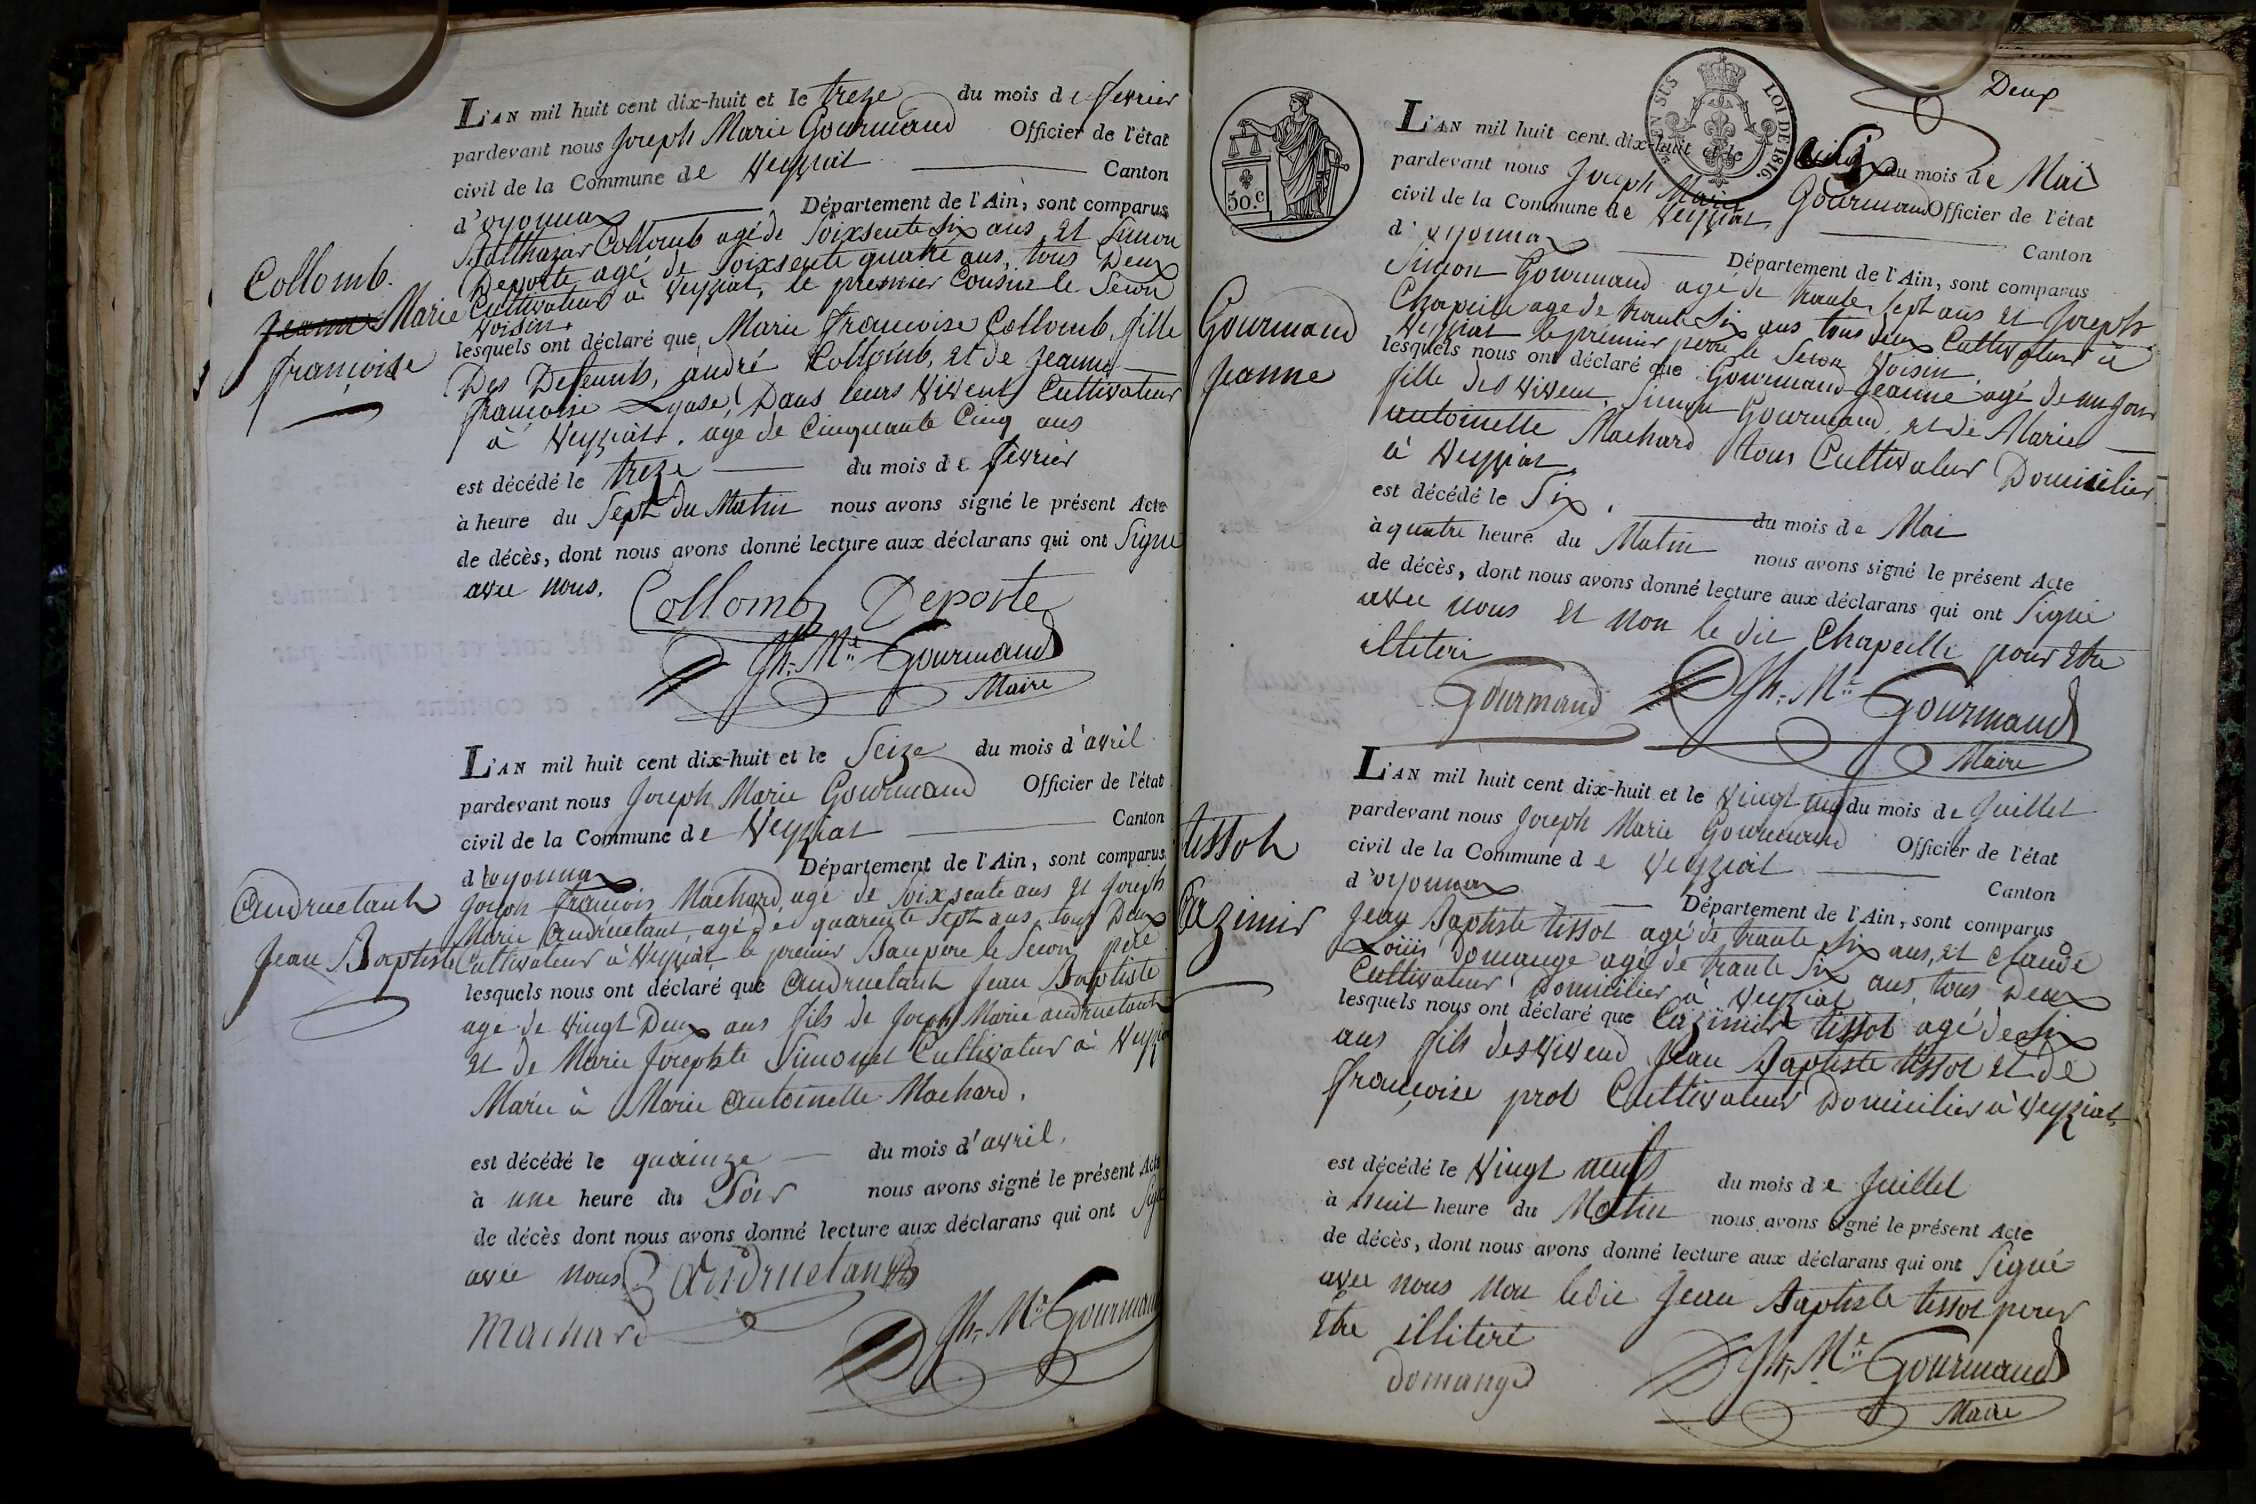 L'AN mil huit cent dix-huit et le treze du mois de fevrier
pardevant nous Joseph Marie Gourmand Officier de l'état
civil de la Commune de Veyziat Canton
d'oyonnax Département de l'Ain, sont comparus
Balthazar Collomb agé de soixsente six ans et Simon
Deporte agé de soixsente quatre ans, tous Deux
Cultivateur à Veyziat, le premier Cousin le Secon
Voisin.
Collomb.
Jeanne Marie
françoise
lesquels ont déclaré que Marie françoise Collomb, fille
Des Defeunts, andré Collomb, et de Jeanne
françoise Lyase, Dans leurs vivent Cultivateur
à Veyziat. age de Cinquante Cinq ans
est décédé le treze du mois de fevrier
à heure du Sept du Matin nous avons signé le présent Acte
de décès, dont nous avons donné lecture aux déclarans qui ont Signé
avec nous.
Collomb Deporte
Jh. Mie Gourmand
Maire
L'AN mil huit cent dix-huit et le Seize du mois d'avril
pardevant nous Joseph Marie Gourmand Officier de l'état
civil de la Commune de Veyziat Canton
d'oyonnax Département de l'Ain, sont comparus
Joseph françois Machard, agé de soixsente ans et Joseph
Marie andruetant agé de quarente Sept ans, tous Deux
Cultivateur à Veyziat le premier Beaupere le Secon père
andruetant
Jean Baptiste
lesquels nous ont déclaré que andruetant Jean Baptiste
age de vingt Deux ans fils de Joseph Marie andruetant
et de Marie Josephte Simonet Cultivateur à Veyziat
Marie à Marie antoinette Machard.
est décédé le quainze du mois d'avril,
à une heure du Soir nous avons signé le présent Acte
de décès dont nous avons donné lecture aux déclarans qui ont Signé
avec nous andruetant
Machard
Jh. Mie Gourmand
Deux
30.c
LOI DE 1816.
L'AN mil huit cent dix-huit et le Six du mois de Mai
pardevant nous Joseph Marie Gourmand Officier de l'état
civil de la Commune de Veyziat Canton
d'oyonnax Département de l'Ain, sont comparus
Simon Gourmand agé de trante Sept ans et Joseph
Chapelle age de trante Six ans tous deux Cultivateur à
Veyziat le premier pere le Secon Voisin.
Gourmand
Jeanne
lesquels nous ont déclaré que Gourmand Jeanne agé de un jour
fille des vivent Simon Gourmand, et de Marie
antoinette Machard tous Cultivateur Domicilier
à Veyziat
est décédé le Six. du mois de Mai
à quatre heure du Matin nous avons signé le présent Acte
de décès, dont nous avons donné lecture aux déclarans qui ont Signé
avec nous et non le dit Chapelle pour etre
illitere
Gourmand
Jh. Mie Gourmand
Maire
L'AN mil huit cent dix-huit et le vingt neuf du mois de Juillet
pardevant nous Joseph Marie Gourmand Officier de l'état
civil de la Commune de Veyziat Canton
d'oyonnax Département de l'Ain, sont comparus
Jean Baptiste tissot agé de trante Six ans, et Claude
Louis Domange age de trante Six ans, tous Deux
Cultivateur Domicilier à Veyziat
tissot
Cazimir
lesquels nous ont déclaré que Cazimir tissot agé de Six
ans fils des vivend Jean Baptiste tissot et de
françoise prot Cultivateur Domicilier à Veyziat
est décédé le vingt neuf du mois de Juillet
à huit heure du Matin nous avons signé le présent Acte
de décès, dont nous avons donné lecture aux déclarans qui ont Signé
avec nous non ledit Jean Baptiste tissot pour
Etre illitere
domange
Jh. Mie Gourmand
Maire